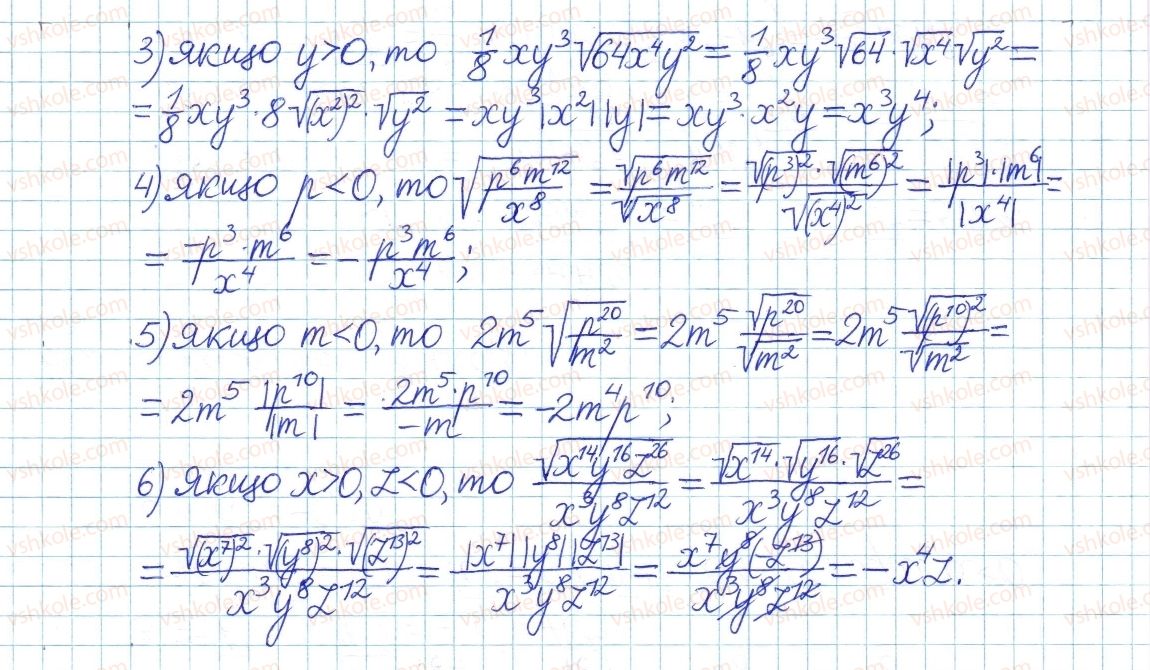 3) якщо y>0, то 1/8 xy³√(64x⁴y²) = 1/8 xy³√64 · √x⁴ √y² =
= 1/8 xy³ · 8√((x²)²) · √y² = xy³|x²||y| = xy³ · x²y = x³y⁴;
4) якщо p<0, то √(p⁶m¹²/x⁸) = √(p⁶m¹²)/√x⁸ = √((p³)²) · √((m⁶)²)/√((x⁴)²) = |p³|·|m⁶|/|x⁴| =
= -p³·m⁶/x⁴ = - p³m⁶/x⁴;
5) якщо m<0, то 2m⁵√(p²⁰/m²) = 2m⁵ √p²⁰/√m² = 2m⁵ √((p¹⁰)²)/√m² =
= 2m⁵ |p¹⁰|/|m| = 2m⁵·p¹⁰/-m = -2m⁴p¹⁰;
6) якщо x>0, z<0, то √(x¹⁴y¹⁶z²⁶)/x³y⁸z¹² = √x¹⁴ · √y¹⁶ · √z²⁶/x³y⁸z¹² =
= √((x⁷)²) · √((y⁸)²) · √((z¹³)²)/x³y⁸z¹² = |x⁷||y⁸||z¹³|/x³y⁸z¹² = x⁷y⁸(-z¹³)/x³y⁸z¹² = -x⁴z.